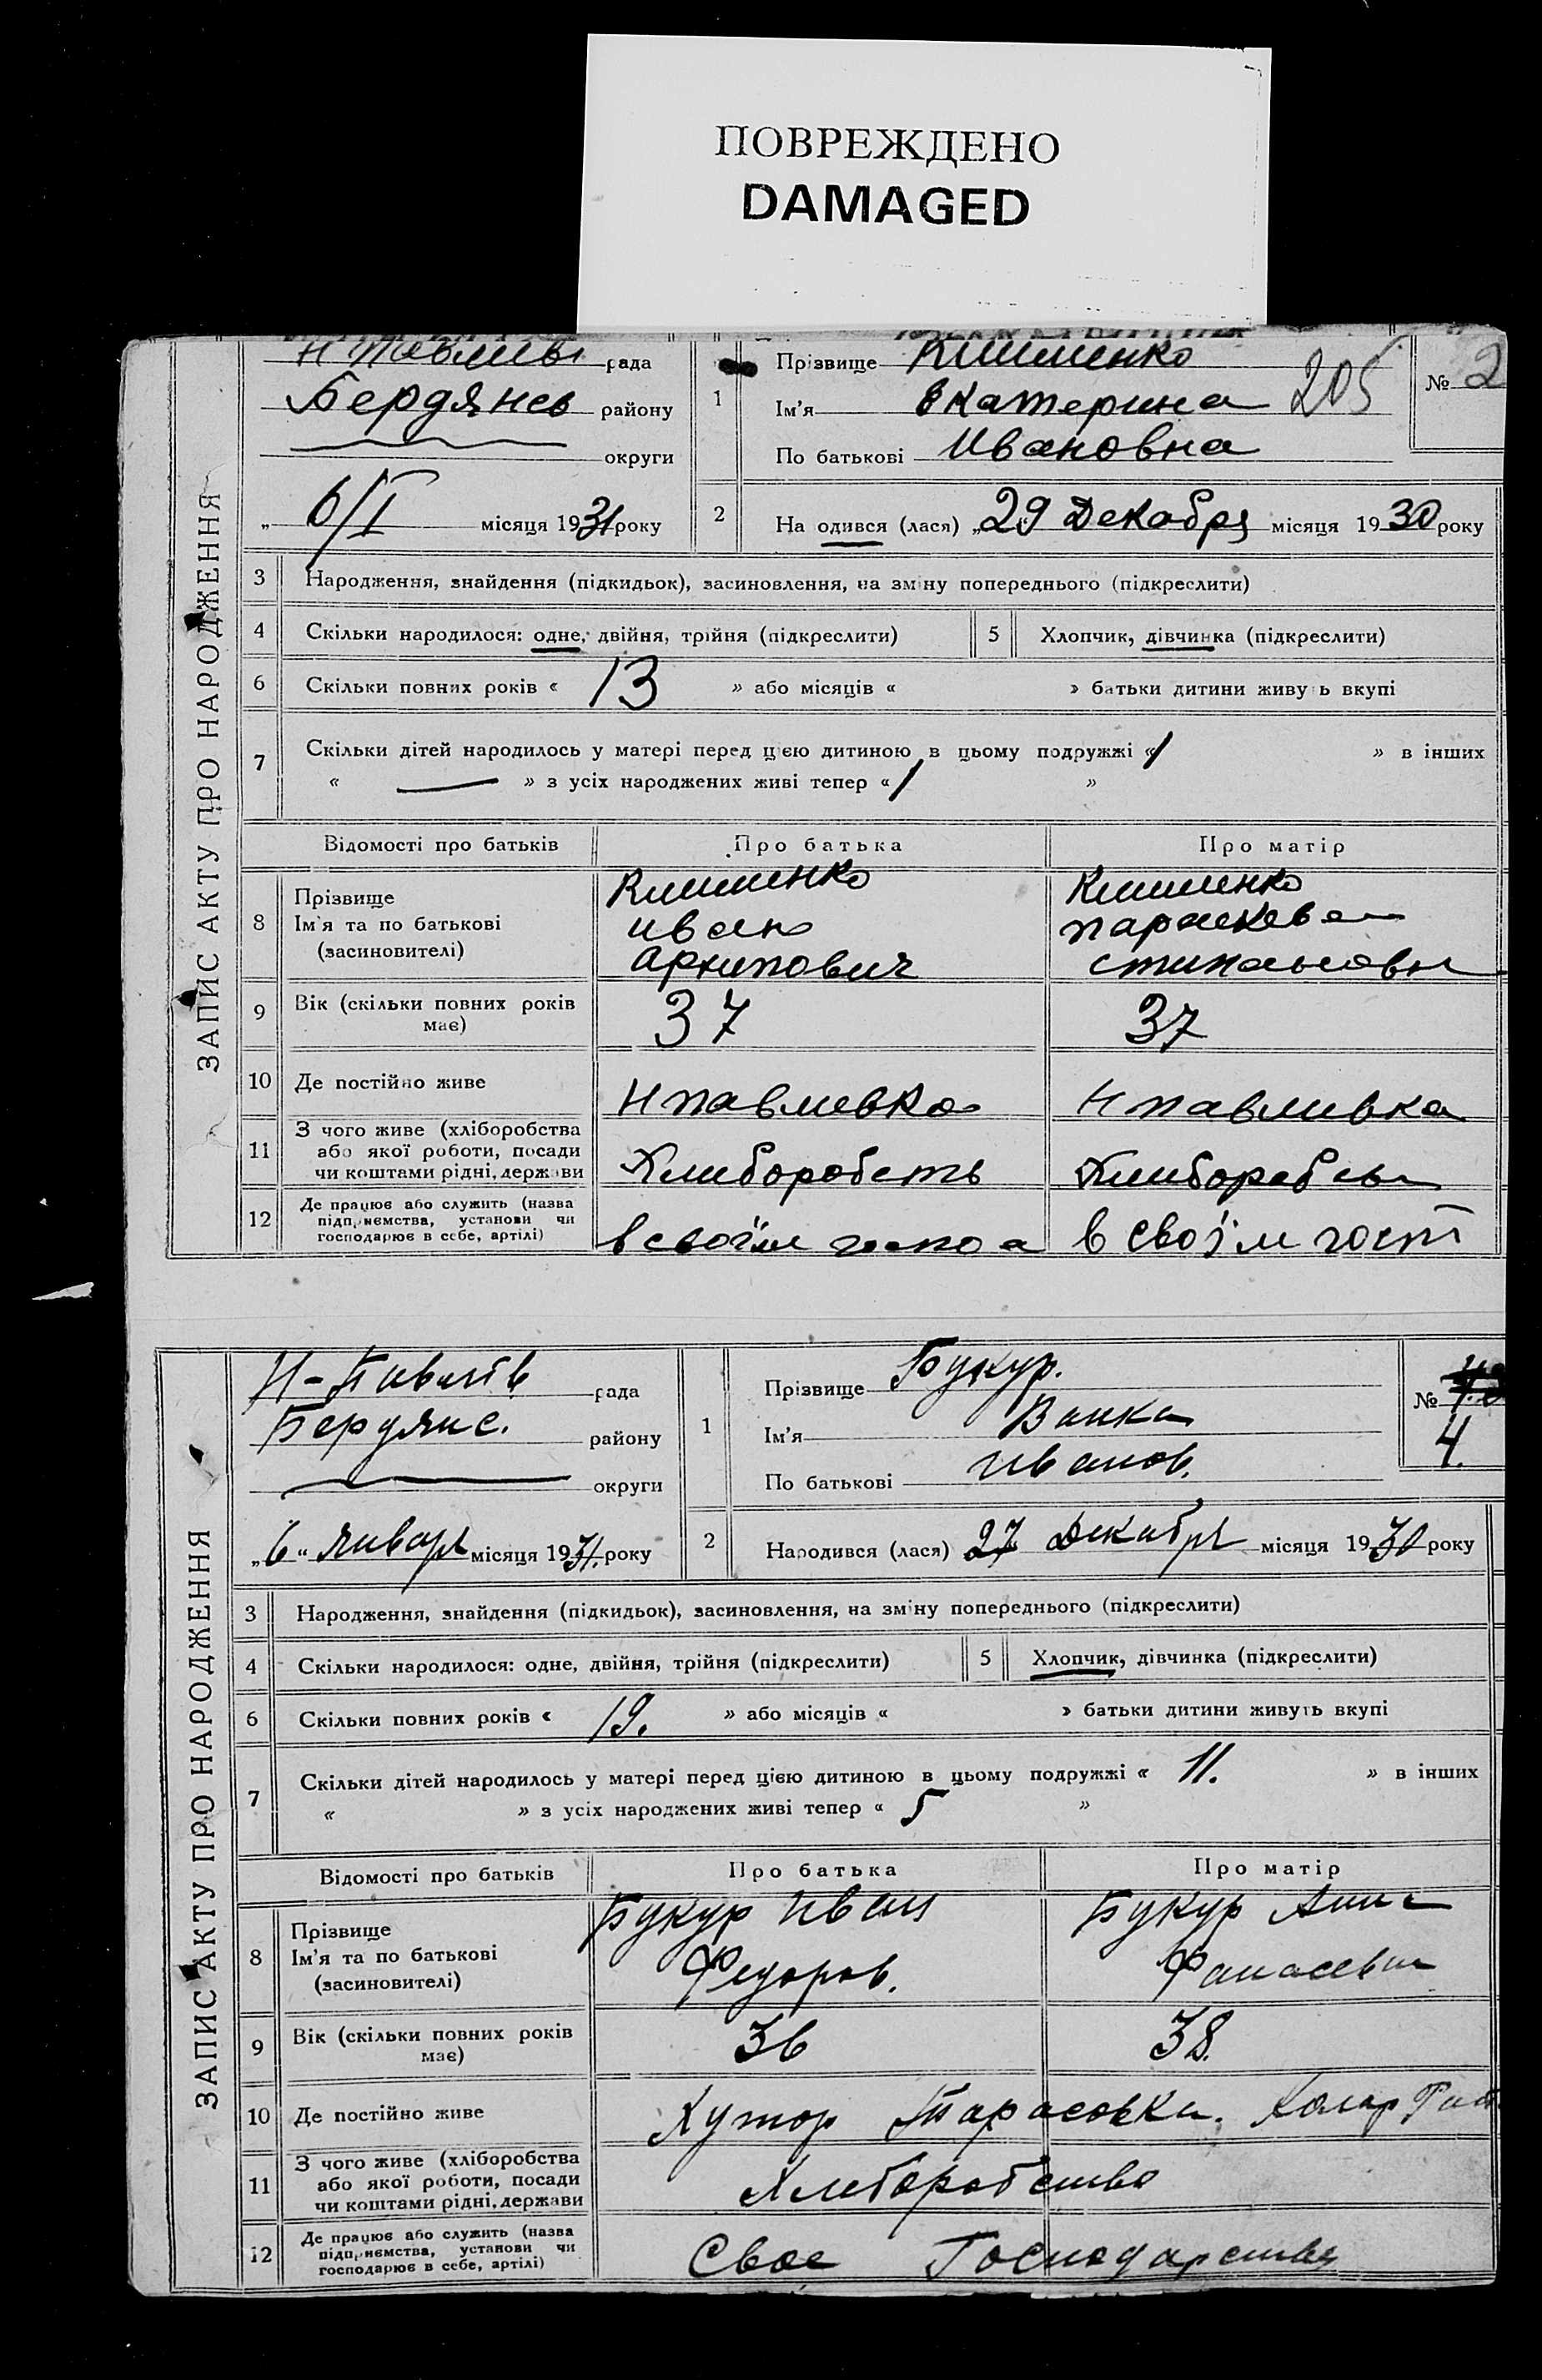 ПОВРЕЖДЕНО
DAMAGED
ЗАПИС АКТУ ПРО НАРОДЖЕННЯ
рада
Бердянсв району
округи
6/I місяця 1931 року
1 Прізвище
Ім'я Екатерина 205
По батькові Ивановна
№ 2
2 На одився (лася) „29 Декабря місяця 1930 року
3 Народження, знайдення (підкидьок), засиновлення, на зміну попереднього (підкреслити)
4 Скільки народилося: одне, двійня, трійня (підкреслити) 5 Хлопчик, дівчинка (підкреслити)
6 Скільки повних років « 13 » або місяців « » батьки дитини живуть вкупі
7 Скільки дітей народилось у матері перед цією дитиною в цьому подружжі « 1 » в інших
« — » з усіх народжених живі тепер « 1 »
Відомості про батьків Про батька Про матір
8 Прізвище
Ім'я та по батькові
(засиновителі)
Иван
Архипович
Параскева
9 Вік (скільки повних років має) 37 37
10 Де постійно живе Н павливка Н павливка
11 З чого живе (хліборобства
або якої роботи, посади
чи коштами рідні, держави
Хлиборобств
12 Де працює або служить (назва
підприємства, установи чи
господарює в себе, артілі)
в своїм в своїм госп
ЗАПИС АКТУ ПРО НАРОДЖЕННЯ
рада
Бердянс. району
округи
„6" января місяця 1931. року
1 Прізвище Букур.
Ім'я
По батькові Иванов.
№ 4.
2 Народився (лася) 27 Декабря місяця 1930 року
3 Народження, знайдення (підкидьок), засиновлення, на зміну попереднього (підкреслити)
4 Скільки народилося: одне, двійня, трійня (підкреслити) 5 Хлопчик, дівчинка (підкреслити)
6 Скільки повних років « 19. » або місяців « » батьки дитини живуть вкупі
7 Скільки дітей народилось у матері перед цією дитиною в цьому подружжі « 11. » в інших
« » з усіх народжених живі тепер « 5 »
Відомості про батьків Про батька Про матір
8 Прізвище
Ім'я та по батькові
(засиновителі)
Букур Иван
Федоров.
Букур Анна
9 Вік (скільки повних років має) 36 38.
10 Де постійно живе Хутор Тарасовка.
11 З чого живе (хліборобства
або якої роботи, посади
чи коштами рідні, держави
Хлиборобство
12 Де працює або служить (назва
підприємства, установи чи
господарює в себе, артілі)
Свое Господарство